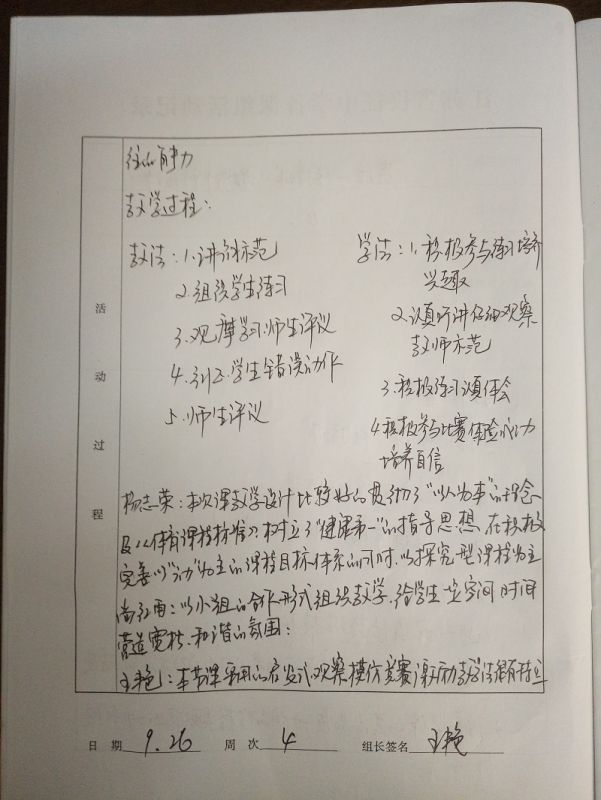 往的能力
教学过程:
教法:1.讲解示范
2.组织学生练习
3.观摩学习.师生评议
4.纠正学生错误动作
5.师生评议
学法:1.积极参与练习培养
兴趣
2.认真听讲仔细观察
教师示范
3.积极练习认真体会
4.积极参与比赛体验成功
培养自信
活
动
过
程
杨志荣:本次课教学设计比较好的贯彻了“以人为本”的理念
及《体育课程标准》树立了“健康第一”的指导思想,在积极
完善以“动”为主的课程目标体系的同时.以探究型课程为主
尚红雨:以小组的合作形式组织教学,给学生一定空间、时间
营造宽松、和谐的氛围:
王艳:本节课采用的启发式.观察模仿竞赛
日 期 9.26 周 次 4 组长签名 王艳